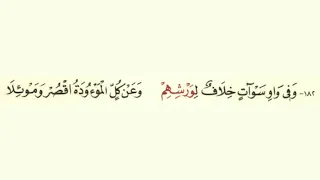 ١٨٢- وَفِى وَاوِ سَوْآتٍ خِلَافٌ لِوَرْشِهِمْ وَعَنْ كُلٍّ الْمَوْءُودَةُ اقْصُرْ وَمَوْئِلَا